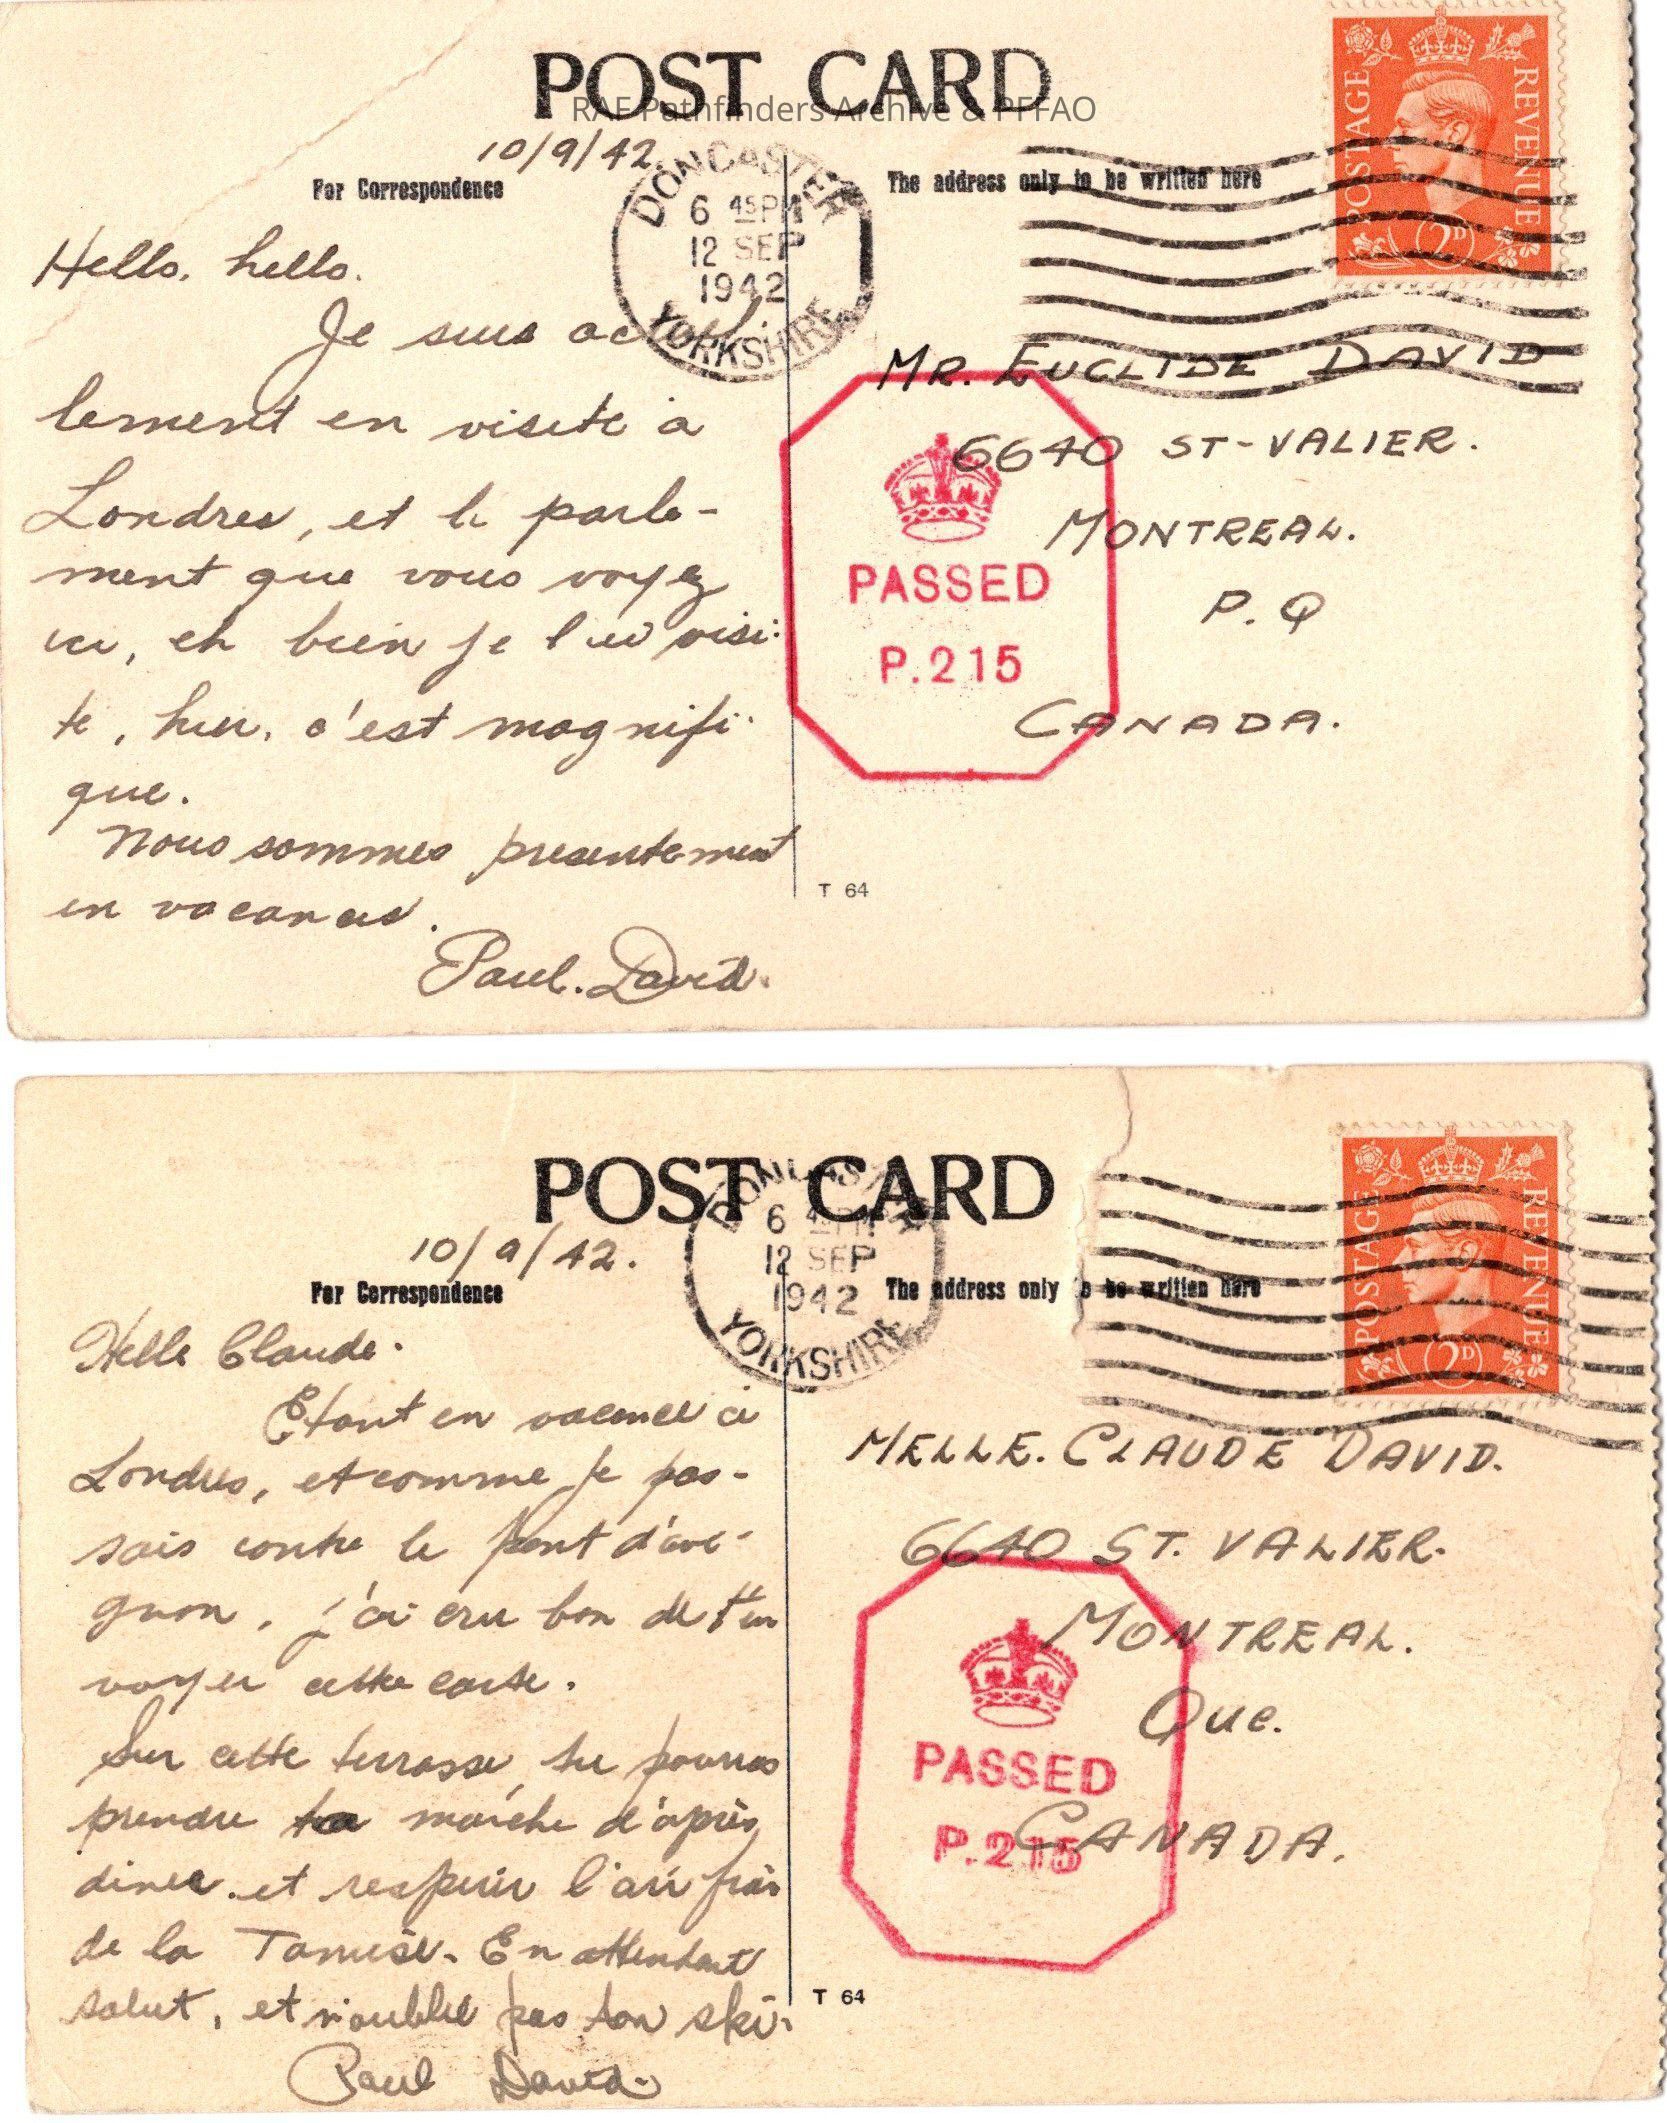 POST CARD
RAF Pathfinders Archive & PFFAO
10/9/42.
For Correspondence
The address only to be written here
DONCASTER
6 45 PM
12 SEP
1942
YORKSHIRE
POSTAGE
REVENUE
2D
Hello, hello.
Je suis actuel
lement en visite a
Londres, et le parle-
ment que vous voyez
ici, eh bien je l'ai visi-
te, hier, c'est magnifi-
que.
Nous sommes presentement
en vacances.
Paul. David.
MR. EUCLIDE DAVID
6640 ST-VALIER.
MONTREAL.
P.Q
CANADA.
PASSED
P.215
T 64
POST CARD
10/9/42.
For Correspondence
The address only to be written here
DONCASTER
6 45 PM
12 SEP
1942
YORKSHIRE
POSTAGE
REVENUE
2D
Hello Claude.
Etant en vacance a
Londres, et comme je pas-
sais contre le pont d'avi-
gnon, j'ai cru bon de t'en
voyer cette carte.
Sur cette terrasse, tu pourras
prendre ta marche d'après
diner et respirer l'air frais
de la Tamise. En attendant
salut, et n'oublie pas ton ski.
Paul David.
MELLE. CLAUDE DAVID.
6640 ST. VALIER.
MONTREAL.
Que.
CANADA.
PASSED
P.215
T 64